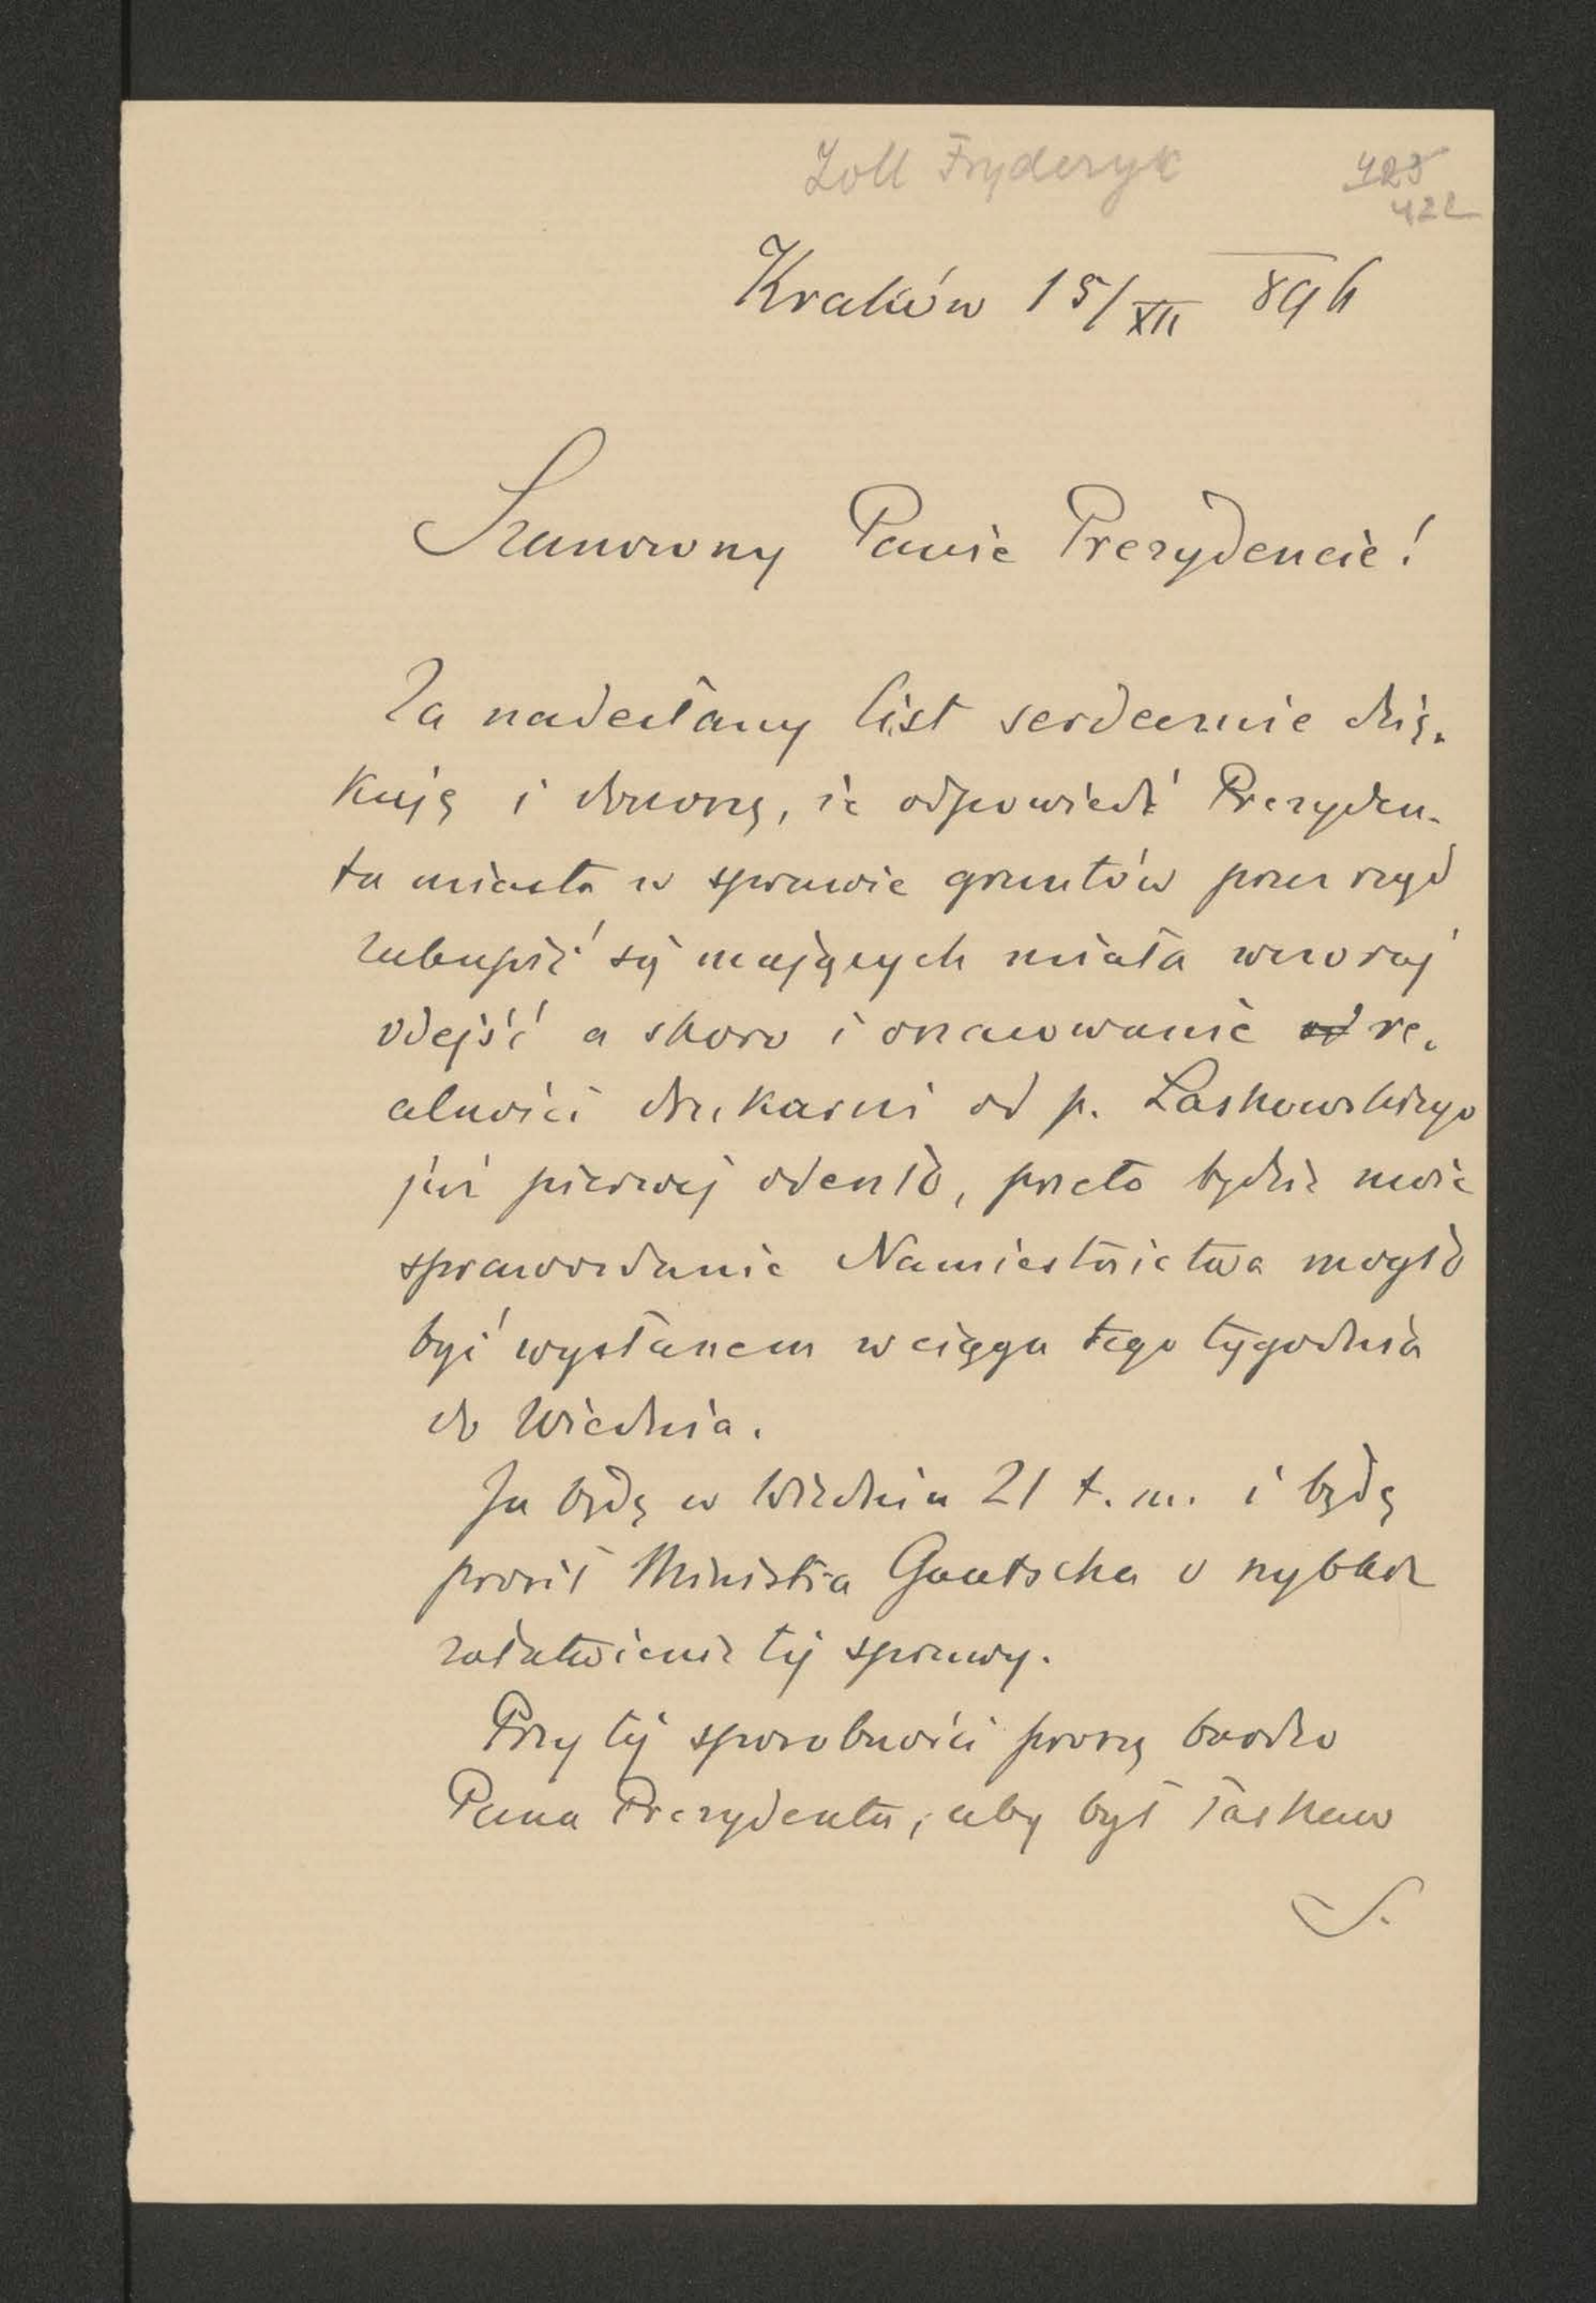 Zoll Fryderyk
423
422
Kraków 15/XII 896
Szanowny Panie Prezydencie!
Za nadesłany list serdecznie dzię-
kuję i donoszę, że odpowiedź Prezyden-
ta miasta w sprawie gruntów przez rząd
zakupić się mających miała wczoraj
odejść a skoro i oszacowanie od re-
alności drukarni od p. Laskowskiego
już pierwej odeszło, przeto będzie może
sprawozdanie Namiestnictwa mogło
być wysłanem w ciągu tego tygodnia
do Wiednia.
Ja będę w Wiedniu 21 t. m. i będę
prosił Ministra Gautscha o rychłe
załatwienie tej sprawy.
Przy tej sposobności proszę bardzo
Pana Prezydenta, aby był łaskaw